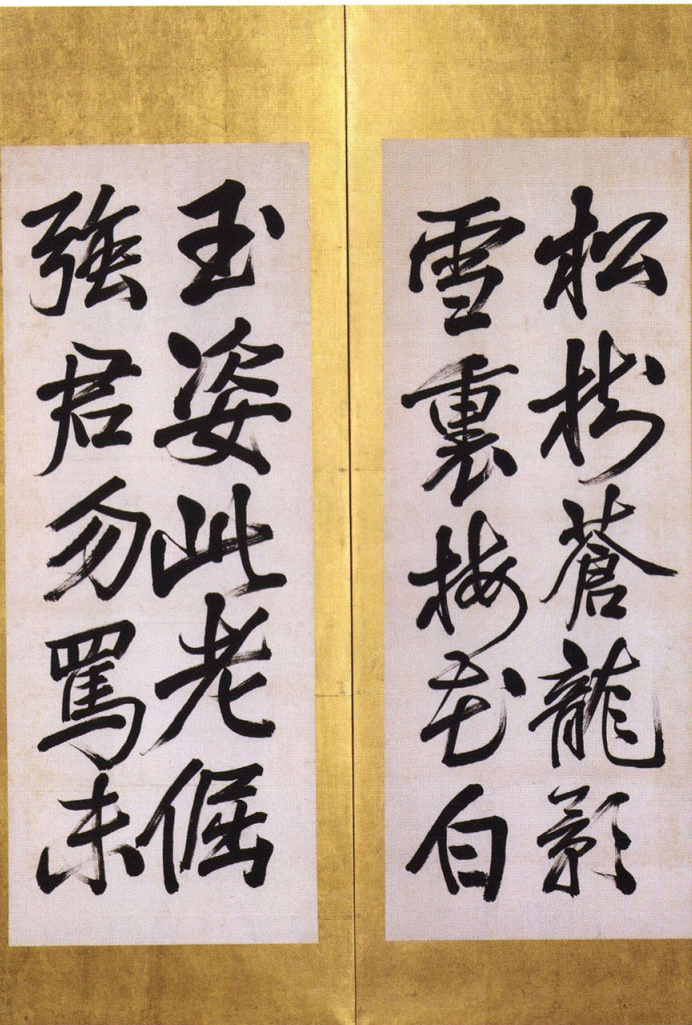 松樹蒼龍影
雪裏梅花白
玉姿此老倔
強君勿罵未